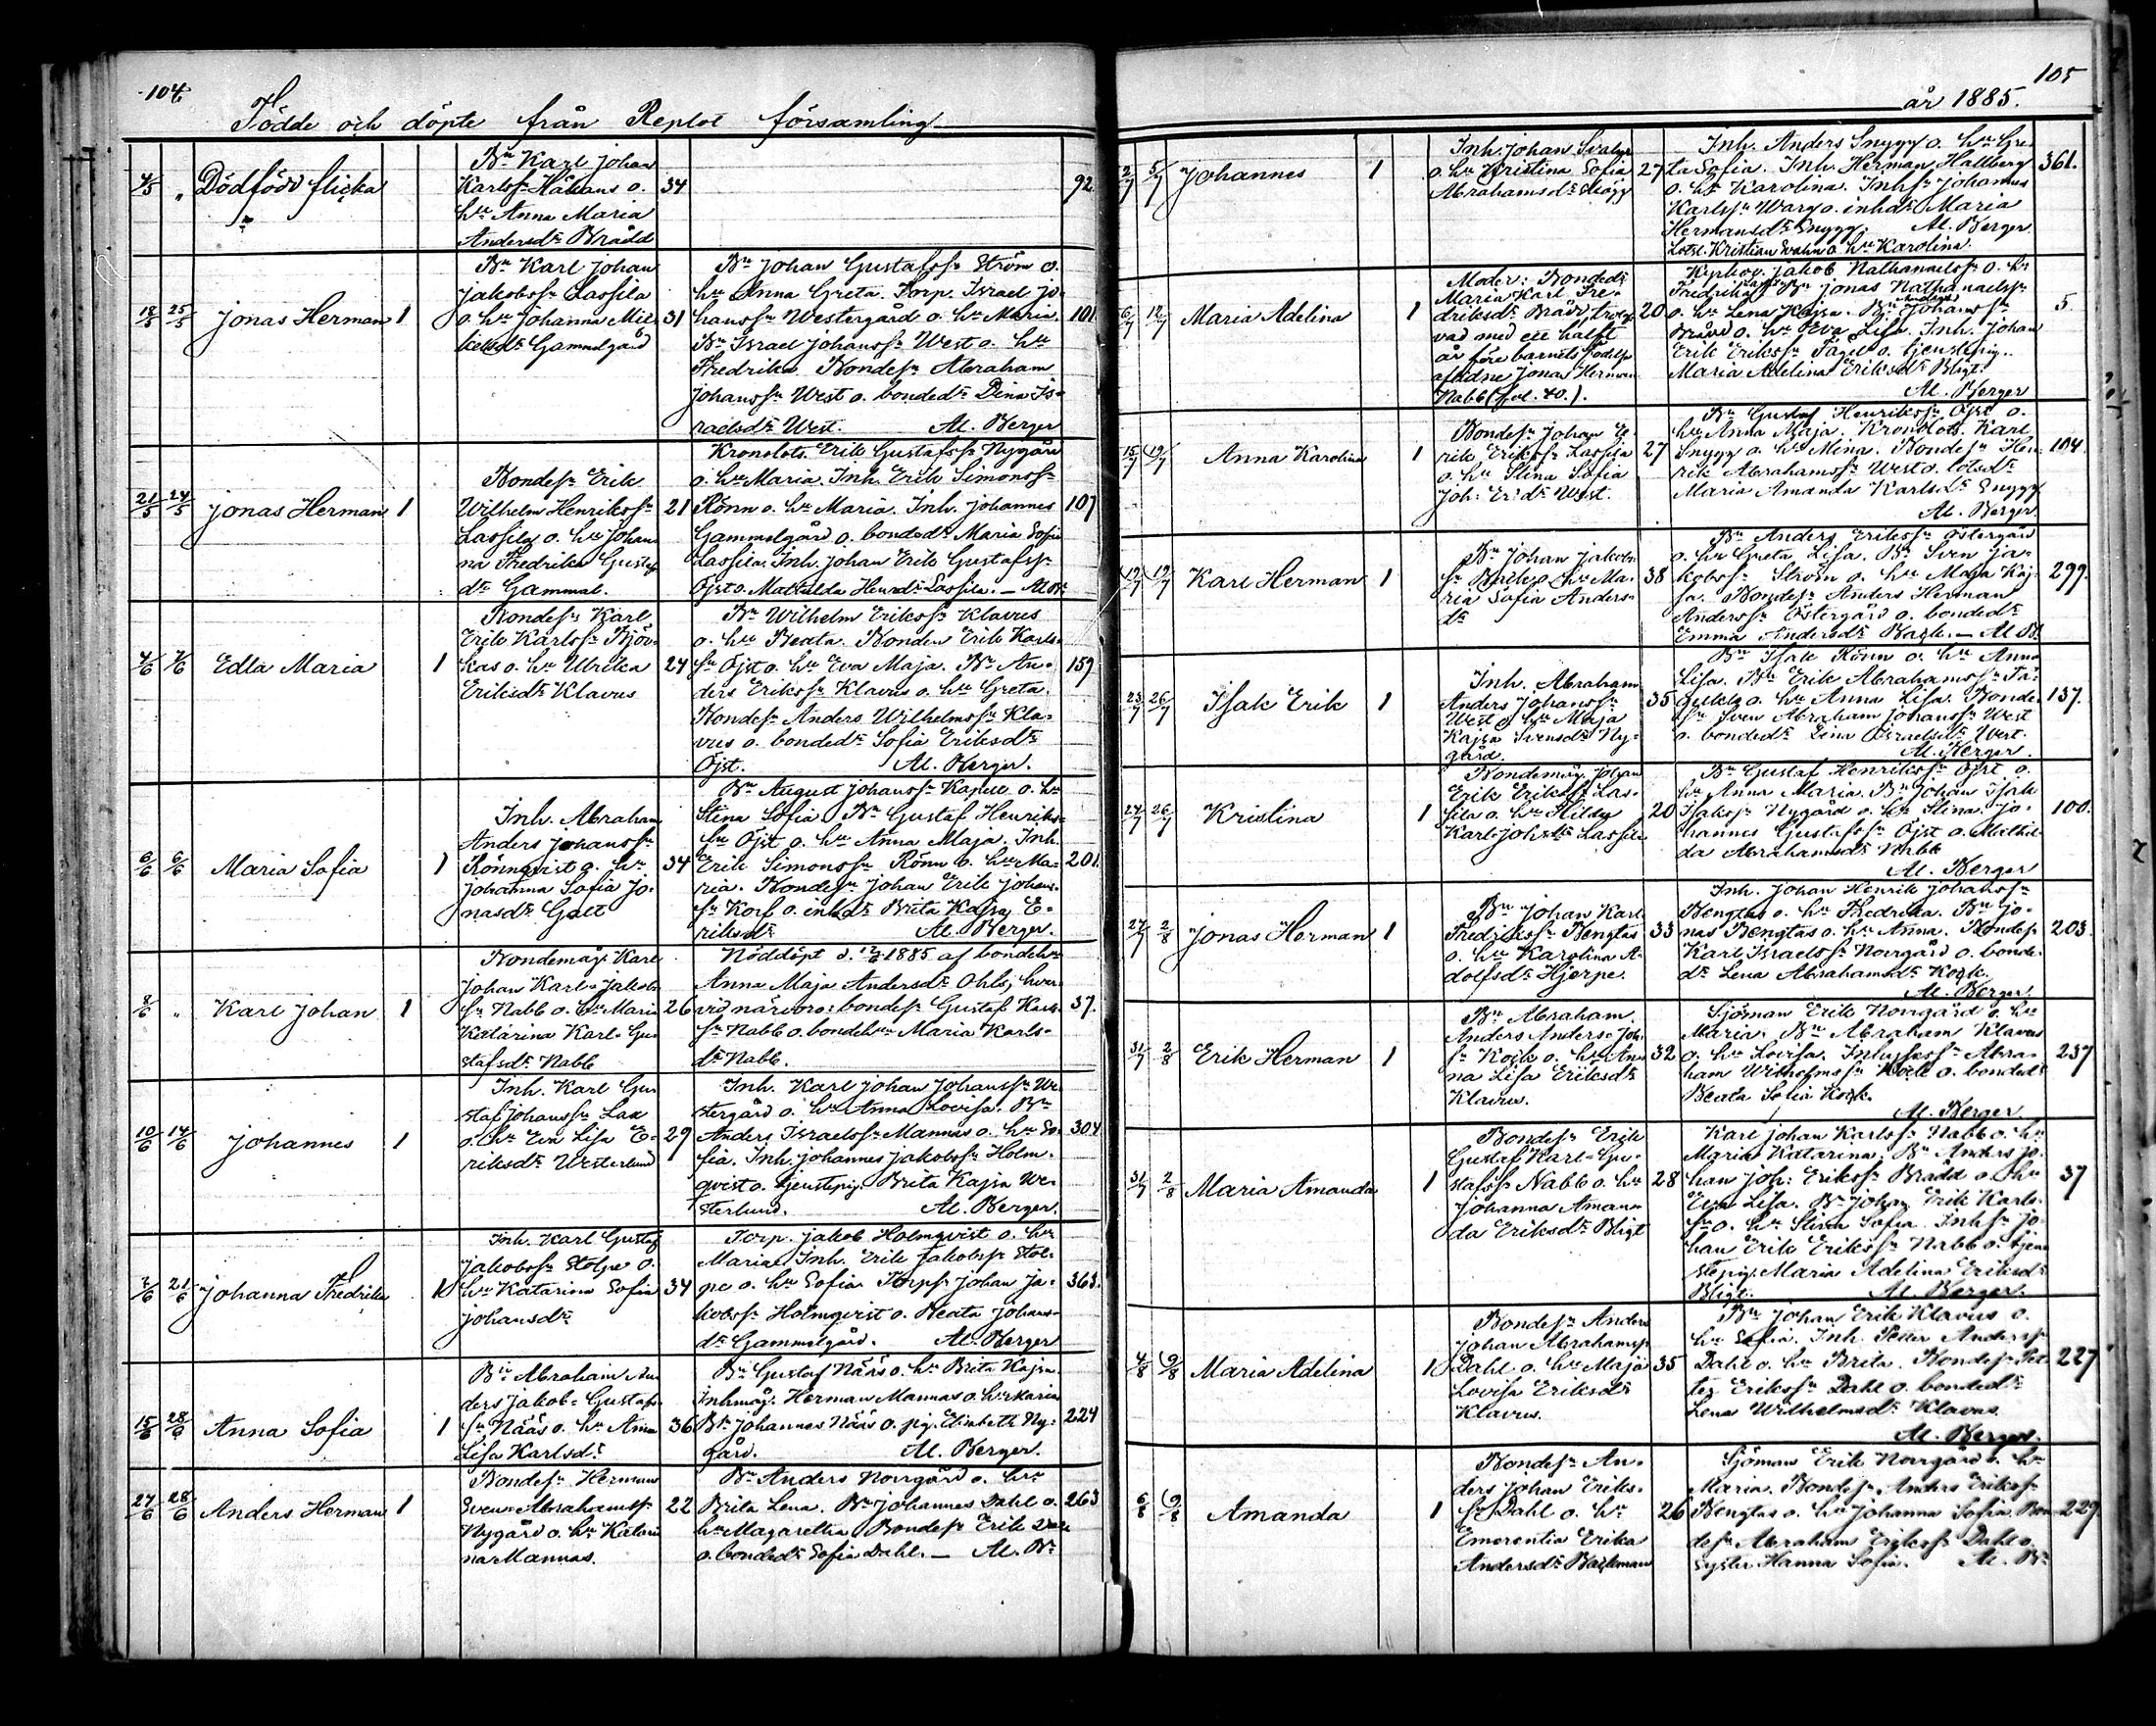 104
Födde och döpte från Replot församling
4/5 " Dödfödd flicka
Bn Karl Johan
Karlssn Håkans o. 34 92
hu Anna Maria
Andersdr Brådd
18/5 25/5 Jonas Herman 1
Bn Karl Johan
Jakobssn Lassila
o. hu Johanna Mic- 31
kelsdr Gammelgård
Bn Johan Gustafssn Ström o.
hu Anna Greta. Torp. Israel Jo-
hanssn Westergård o. hu Maria. 101
Bn Israel Johanssn West o. hu
Fredrika. Bondesn Abraham
Johanssn West o. bondedr Dina Is-
raelsdr West. Al. Berger
21/5 24/5 Jonas Herman 1
Bondesn Erik
Wilhelm Henrikssn 21
Lassila o. hu Johan-
na Fredrika Gustaf
dr Gammal.
Kronolots. Erik Gustafssn Nygård
o. hu Maria. Inh. Erik Simonssn
Rönn o. hu Maria. Inh. Johannes 107
Gammelgård o. bondedr Maria Sofia
Lassila. Inh. Johan Erik Gustafssn
Öjst o. Mathilda Henrdr Lassila. — Al. Br
4/6 7/6 Edla Maria 1
Bondesn Karl
Erik Karlssn Björ-
kas o. hu Ulrika 24
Eriksdr Klavus
Bn Wilhelm Erikssn Klavus
o. hu Beata. Bonden Erik Karls-
sn Öjst o. hu Eva Maja. Bn An- 159
ders Erikssn Klavus o. hu Greta.
Bondesn Anders Wilhelmssn Kla-
vus o. bondedr Sofia Eriksdr
Öjst. Al. Berger.
6/6 6/6 Maria Sofia 1
Inh. Abraham
Anders Johanssn
Rönnqvist o. hu 34
Johanna Sofia Jo-
nasdr Galt
Bn August Johanssn Kapell o. hu
Stina Sofia. Bn Gustaf Henriks-
sn Öjst o. hu Anna Maja. Inh.
Erik Simonssn Rönn o. hu Ma- 201.
ria. Bondesn Johan Erik Johans-
sn Korf o. inhdr Brita Kajsa E-
riksdr Al. Berger.
8/6 " Karl Johan 1
Bondemåg Karl
Johan Karl-Jakobs
sn Nabb o. hu Maria 26
Katarina Karl-Gu-
stafsdr Nabb
Nöddöpt d. 12/6 1885 af bondehu
Anna Maja Andersdr Ohls, hvar-
vid närvoro: bondesn Gustaf Karls- 37.
sn Nabb o. bondehu Maria Karls-
dr Nabb.
10/6 14/6 Johannes 1
Inh. Karl Gu-
staf Johanssn Lax
o. hu Eva Lisa E- 29
riksdr Westerlund
Inh. Karl Johan Johanssn We-
stergård o. hu Anna Lovisa. Bn
Anders Israelssn Mannas o. hu So- 304
fia. Inh. Johannes Jakobssn Holm-
qvist o. tjenstepig. Brita Kajsa We-
sterlund. Al. Berger.
7/6 21/6 Johanna Fredrika 1
Inh. Karl Gustaf
Jakobssn Stolpe o.
hu Katarina Sofia 34
Johansdr
Torp. Jakob Holmqvist o. hu
Maria. Inh. Erik Jakobssn Stol-
pe o. hu Sofia. Torpsn Johan Ja- 363.
kobssn Holmqvist o. Beata Johans-
dr Gammelgård. Al. Berger
15/6 28/6 Anna Sofia 1
Bn Abraham An-
ders Jakob-Gustafs-
sn Nääs o. hu Anna 36
Lisa Karlsdr
Bn Gustaf Nääs o. hu Brita Kajsa.
Inhmåg. Herman Mannas o. hu Maria
Bn Johannes Nääs o. pig. Elisabeth Ny- 224
gård. Al. Berger.
27/6 28/6 Anders Herman 1
Bondesn Herman
Sven-Abrahamssn 22
Nygård o. hu Katari-
na Mannas.
Bn Anders Norrgård o. hu
Brita Lena. Bn Johannes Dahl o. 263
hu Magaretha. Bondesn Erik Dahl
o. bondedr Sofia Dahl. — Al. Br
105
år 1885.
2/7 5/7 Johannes 1
Inh. Johan Svahn
o. hu Kristina Sofia 27
Abrahamsdr
Inh. Anders Snygg o. hu Gre-
ta Sofia. Inh. Herman Hallberg 361.
o. hu Karolina. Inhsn Johannes
Karlssn Warg o. inhdr Maria
Hermansdr Snygg. Al. Berger
Lotsl. Kristian Svahn o. hu Karolina.
6/7 12/7 Maria Adelina 1
Moder: Bondedr
Maria Karl Fre-
driksdr Brådd, trolof- 20
vad med ett halft
år före barnets födelse
aflidne Jonas Herman
Nabb (fol. 40.).
Jakob Nathanaelssn o. hu
Fredrika. Bn Jonas Nathanaelssn
o. hu Lena Kajsa. Bn Anders Johanssn 5
Brådd o. hu Eva Lisa. Inh. Johan
Erik Erikssn Fågel o. tjenstepig.
Maria Adelina Eriksdr Bligt.
Al. Berger
15/7 19/7 Anna Karolina 1
Bondesn Johan E-
rik Erikssn Lassila 27
o. hu Stina Sofia
Joh: Er:dr West.
Bn Gustaf Henrikssn Öjst o.
hu Anna Maja. Kronolots. Karl
Snygg o. hu Mina. Bondesn Hen- 104
rik Abrahamssn West o. lotsdr
Maria Amanda Karlsdr Snygg
Al. Berger.
19/7 19/7 Karl Herman 1
Bn Johan Jakobs-
sn Back o. hu Ma- 38
ria Sofia Anders-
dr
Bn Anders Erikssn Östergård
o. hu Greta Lisa. Bn Sven Ja-
kobssn Ström o. hu Maja Kaj- 299.
sa. Bondesn Anders Herman
Anderssn Östergård o. bondedr
Emma Andersdr Back. — Al. Br
23/7 26/7 Isak Erik 1
Inh. Abraham
Anders Johanssn 35
West o. hu Maja
Kajsa Svensdr Ny-
gård.
Bn Isak Rönn o. hu Anna
Lisa. Bn Erik Abrahamssn Få-
o. hu Anna Lisa. Bonde- 137.
sn Sven Abraham Johanssn West
o. bondedr Dina Israelsdr West.
Al. Berger.
24/7 26/7 Kristina 1
Bondemåg Johan
Erik Erikssn Las-
sila o. hu Hilda 20
Karl-Johsdr Lassila
Bn Gustaf Henrikssn Öjst o.
hu Anna Maria. Bn Johan Isak
Isakssn Nygård o. hu Stina. Jo- 100.
hannes Gustafssn Öjst o. Mathil-
da Abrahamsdr Nabb
Al. Berger
27/7 2/8 Jonas Herman 1
Bn Johan Karl
Fredrikssn Bengtas 33
o. hu Karolina A-
dolfsdr Hjerpe.
Inh. Johan Henrik Johanssn
Bengtas o. hu Fredrika. Bn Jo-
nas Bengtas o. hu Anna. Bondesn 203.
Karl Israelssn Norrgård o. bonde-
dr Lena Abrahamsdr Kock.
Al. Berger.
31/7 2/8 Erik Herman 1
Bn Abraham
Anders Anders-Joh:
sn Kock o. hu An- 32
na Lisa Eriksdr
Klavus.
Sjöman Erik Norrgård o. hu
Maria. Bn Abraham Klavus
o. hu Lovisa. Abra- 237
ham Wilhelmssn Kock o. bondedr
Beata Sofia Kock.
Al. Berger
31/7 2/8 Maria Amanda 1
Bondesn Erik
Gustaf Karl-Gu-
stafssn Nabb o. hu 28
Johanna Aman-
da Eriksdr Bligt
Karl Johan Karlssn Nabb o. hu
Maria Katarina. Bn Anders Jo-
han Joh: Erikssn Brådd o. hu 37
Eva Lisa. Bn Johan Erik Karls-
sn o. hu Stina Sofia. Inhsn Jo-
han Erik Erikssn Nabb o. tjen-
stepig. Maria Adelina Eriksdr
Bligt. Al. Berger.
4/8 9/8 Maria Adelina 1
Bondesn Anders
Johan Abrahamssn
Dahl o. hu Maja 35
Lovisa Eriksdr
Klavus.
Bn Johan Erik Klavus o.
hu Sofia. Inh. Petter Anderssn
Dahl o. hu Brita. Bondesn Pet- 227
ter Erikssn Dahl o. bondedr
Lena Wilhelmsdr Klavus.
Al. Berger.
6/8 9/8 Amanda 1
Bondesn An-
ders Johan Eriks-
sn Dahl o. hu 26
Emerentia Erika
Andersdr Backman
Sjöman Erik Norrgård o. hu
Maria. Bondesn Anders Erikssn
Bengtas o. hu Johanna Sofia. Bon- 229
desn Abraham Erikssn Dahl o.
syster Hanna Sofia. Al. Br